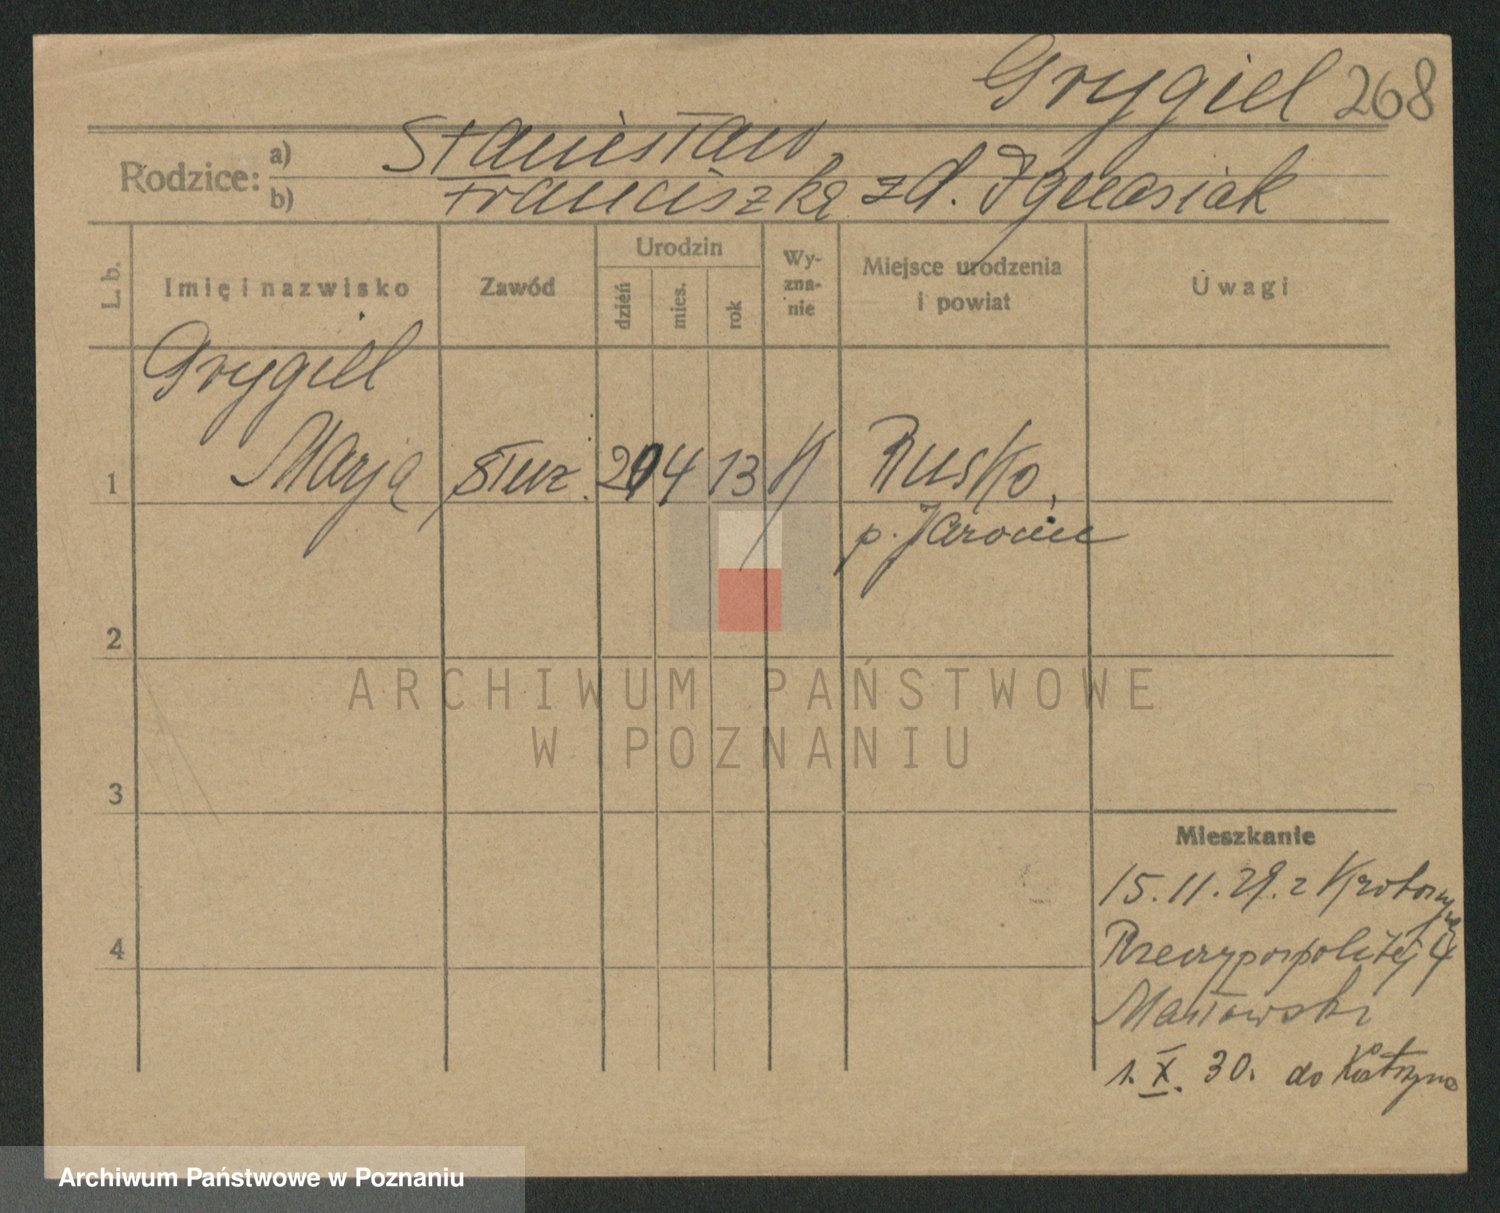 Grygiel 268
Rodzice: a) Stanisław
b) Franciszka zd. Ignasiak
L. b.
Imię i nazwisko
Zawód
Urodzin
dzień
mies.
rok
Wy-
zna-
nie
Miejsce urodzenia
i powiat
Uwagi
Grygiel
1 Marja służ. 4 13 K Rusko,
p. Jarocin
2
ARCHIWUM PAŃSTWOWE
W POZNANIU
3
Mieszkanie
15.11.29. z Krotoszyna
4 Rzeczypospolitej 4
Masłowski
1. X. 30. do Kostrzyna
Archiwum Państwowe w Poznaniu